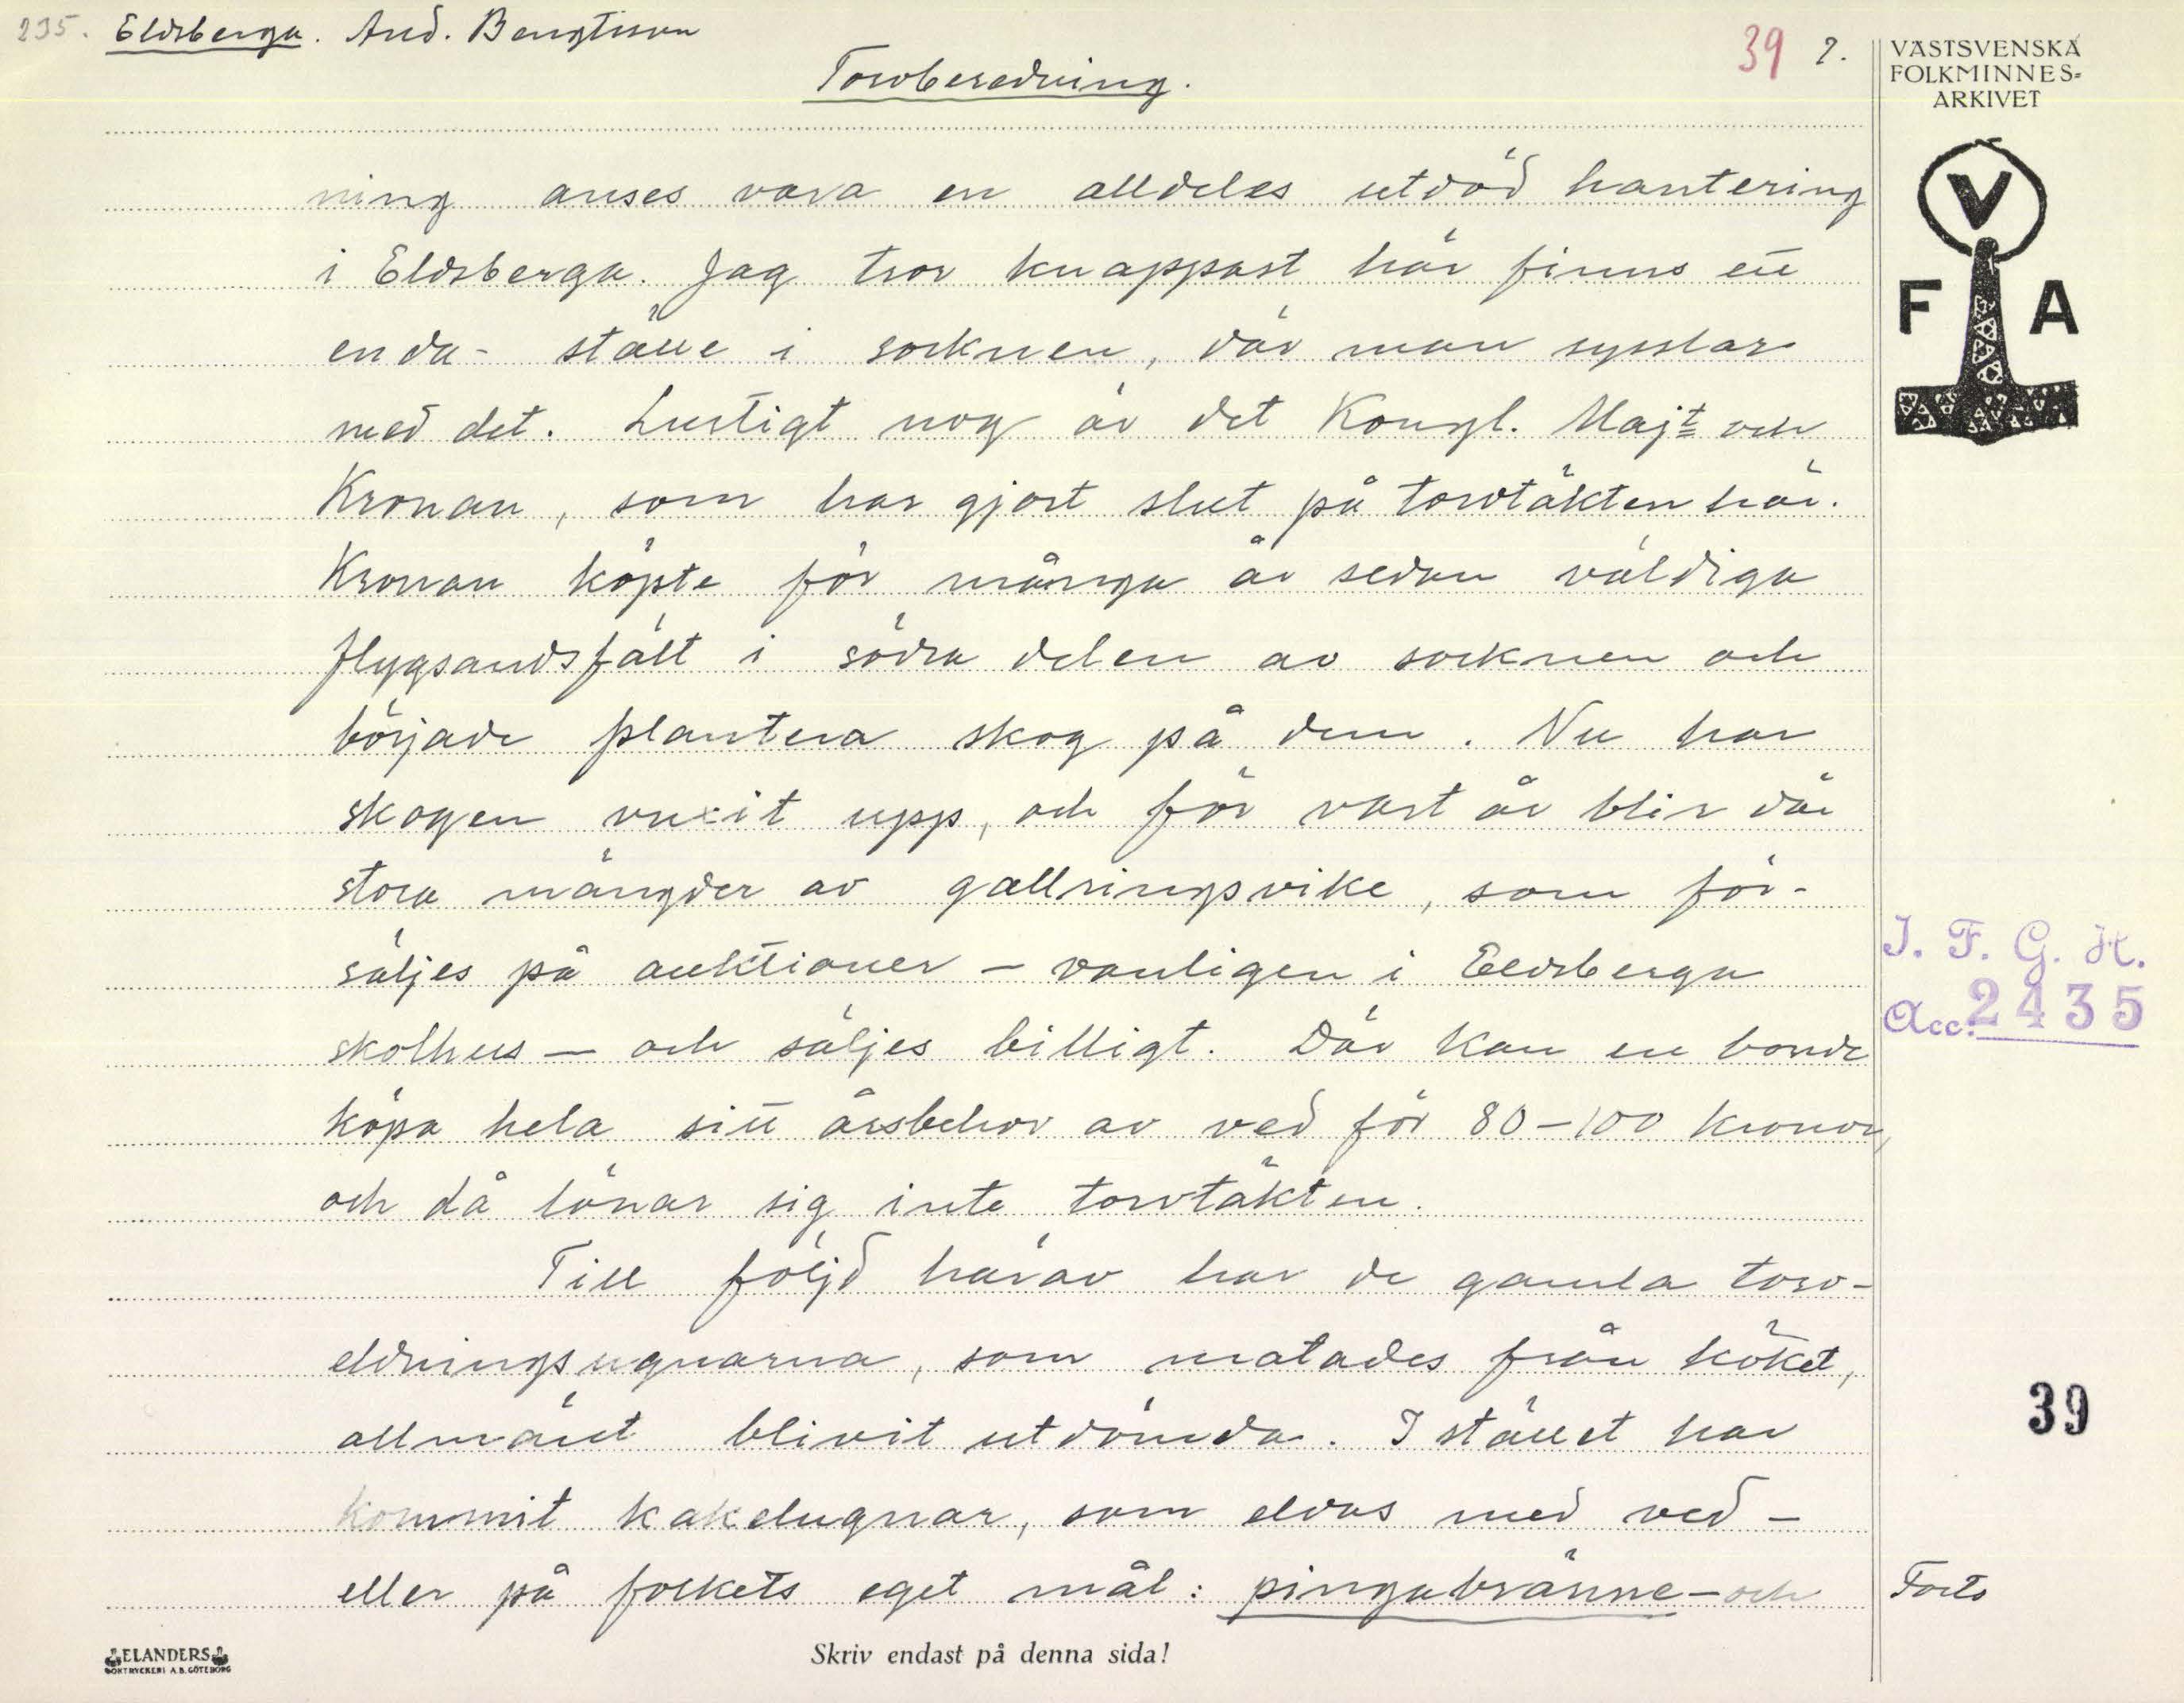 235. Eldsberga. And. Bengtsson
39 2.
Torvberedning.
VÄSTSVENSKA
FOLKMINNES=
ARKIVET
V
F A
ning anses vara en alldeles utdöd hantering
i Eldsberga. Jag tror knappast här finns ett
enda ställe i socknen, där man sysslar
med det. Lustigt nog är det Kongl. Majt och
Kronan, som har gjort slut på torvtäkten här.
Kronan köpte för många år sedan väldiga
flygsandsfält i södra delen av socknen och
började plantera skog på dem. Nu har
skogen vuxit upp, och för vart år blir där
stora mängder av gallringsvike, som för-
säljes på auktioner - vanligen i Eldsberga
skolhus - och säljes billigt. Där kan en bonde
köpa hela sitt årsbehov av ved för 80-100 kronor,
och då lönar sig inte torvtäkten.
Till följd härav har de gamla torv-
eldningsugnarna, som matades från köket,
allmänt blivit utdömda. I stället har
kommit kakelugnar, som eldas med ved -
eller på folkets eget mål: pingabränne - och
I. F. G. H.
Acc. 2435
39
Forts
ELANDERS
BOKTRYCKERI A.B. GÖTEBORG
Skriv endast på denna sida!